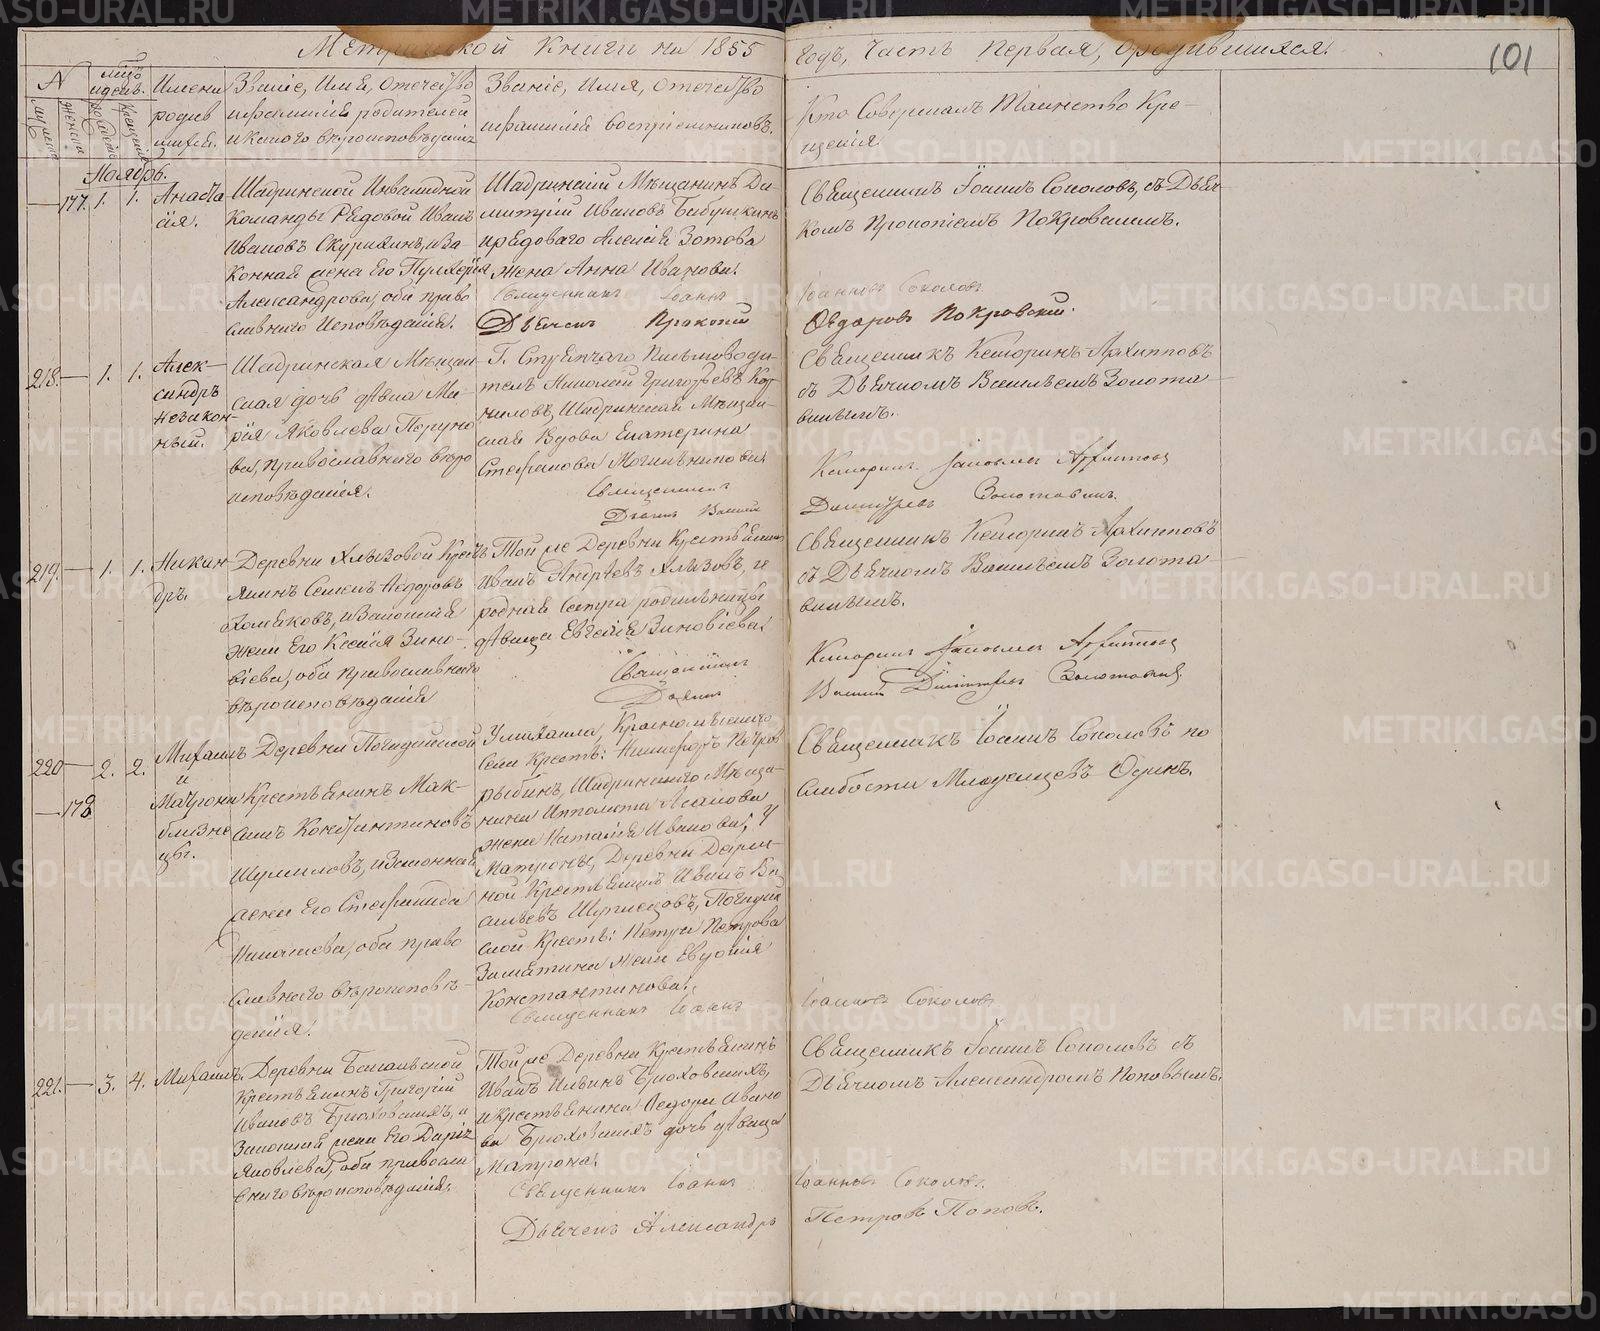 Метрической Книги на 1855 Годъ, Часть Первая, о родившихся.
101
N
Мужеска
Женска
Рожденія
Крещенія
Имена
родив
шихся.
Званіе, Имя, Отечество
и фамилія родителей
и какого вѣроисповѣданія
Званіе, Имя, Отечество
и фамилія воспріемниковъ.
Кто Совершалъ Таинство Кре-
щенія
Ноябрь.
177. 1. 1.
Анаста
сія.
Шадринской Инвалидной
Команды Рядовой Иванъ
Ивановъ Скурихинъ, и за
конная жена Его Пулхерія
Александрова, оба право
славнаго Исповѣданія.
Шадринскій Мѣщанинъ Ди
митрій Ивановъ Бабушкинъ
и рядоваго Алексія Зотова
жена Анна Иванова.
Священникъ Іоаннъ
Дьячекъ Прокопій
Священникъ Іоаннъ Соколовъ, съ Дьяч
комъ Прокопіемъ Покровскимъ.
Іоанновъ Соколовъ
Ѳедоровъ Покровскій.
218. 1. 1.
Алек-
сандръ
незакон-
ный.
Шадринская Мѣщан
ская дочь дѣвка Ма-
рія Яковлева
православнаго вѣро
исповѣданія.
Г. Стряпчаго Письмоводи-
тель Николай Григорьевъ Кор
ниловъ, Шадринская Мѣщан-
ская Вдова Екатерина
Стефанова Могильникова
Священникъ
Дьячекъ Василій
Священникъ Кесарій Архипповъ
съ Дьячкомъ Васильемъ Золота
винымъ.
Архипповъ
Димитріевъ Золотавинъ.
219. 1. 1.
Никан
дръ.
Деревни Хлызовой Крест
янинъ Семенъ Ѳедоровъ
и Законная
жена Его Ксенія Зино-
віева, оба православнаго
вѣроисповѣданія
Той же Деревни Крестьянинъ
Иванъ Андреевъ Хлызовъ, и
родная Сестра родильницы
дѣвица Евгенія Зиновіева.
Священникъ
Дьячекъ
Священникъ Кесарій Архипповъ
съ Дьячкомъ Васильемъ Золота-
винымъ.
Архипповъ
Василій Димитріевъ Золотавинъ
220 2. 2.
178
Михаилъ
и
Матрона
близне
цы.
Деревни Погадайской
Крестьянинъ Мак-
симъ Константиновъ
Шумиловъ, и Законная
жена Его Стефанида
оба право
славнаго вѣроисповѣ-
данія.
У Михаила, Красномыльскаго
Села Кресть: Никифоръ Петров
Рыбинъ, Шадринскаго Мѣща-
нина Ипполита
жена Наталія Иванова, У
Матроны, Деревни
ной Крестьянинъ Иванъ Ва
сильевъ
ской Кресть: Петра Петрова
Замятина жена Евдокія
Константинова.
Священникъ Іоаннъ
Священникъ Іоаннъ Соколовъ по
слабости Младенцевъ Одинъ.
Іоанновъ Соколовъ
221. 3. 4.
Михаилъ.
Деревни
Крестьянинъ Григорій
Ивановъ Брюховскихъ, и
Законная жена Его Дарья
Яковлева, оба правосла
внаго вѣроисповѣданія.
Той же Деревни Крестьянинъ
Иванъ Ильинъ Брюховскихъ,
и Крестьянина Ѳедора Ивано
ва Брюховскихъ дочь дѣвица
Матрона.
Священникъ Іоаннъ
Дьячекъ Александръ
Священникъ Іоаннъ Соколовъ съ
Дьячкомъ Александромъ Поповымъ.
Іоанновъ Соколовъ.
Петровъ Поповъ.
METRIKI.GASO-URAL.RU